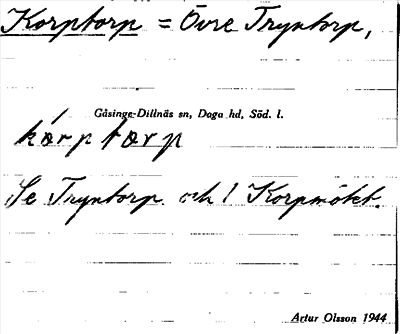 Korptorp = Övre Tryntorp,
Gåsinge-Dillnäs sn, Daga hd, Söd. l.
kórptorp
Se Tryntorp och 1 Korpmökt.
Artur Olsson 1944